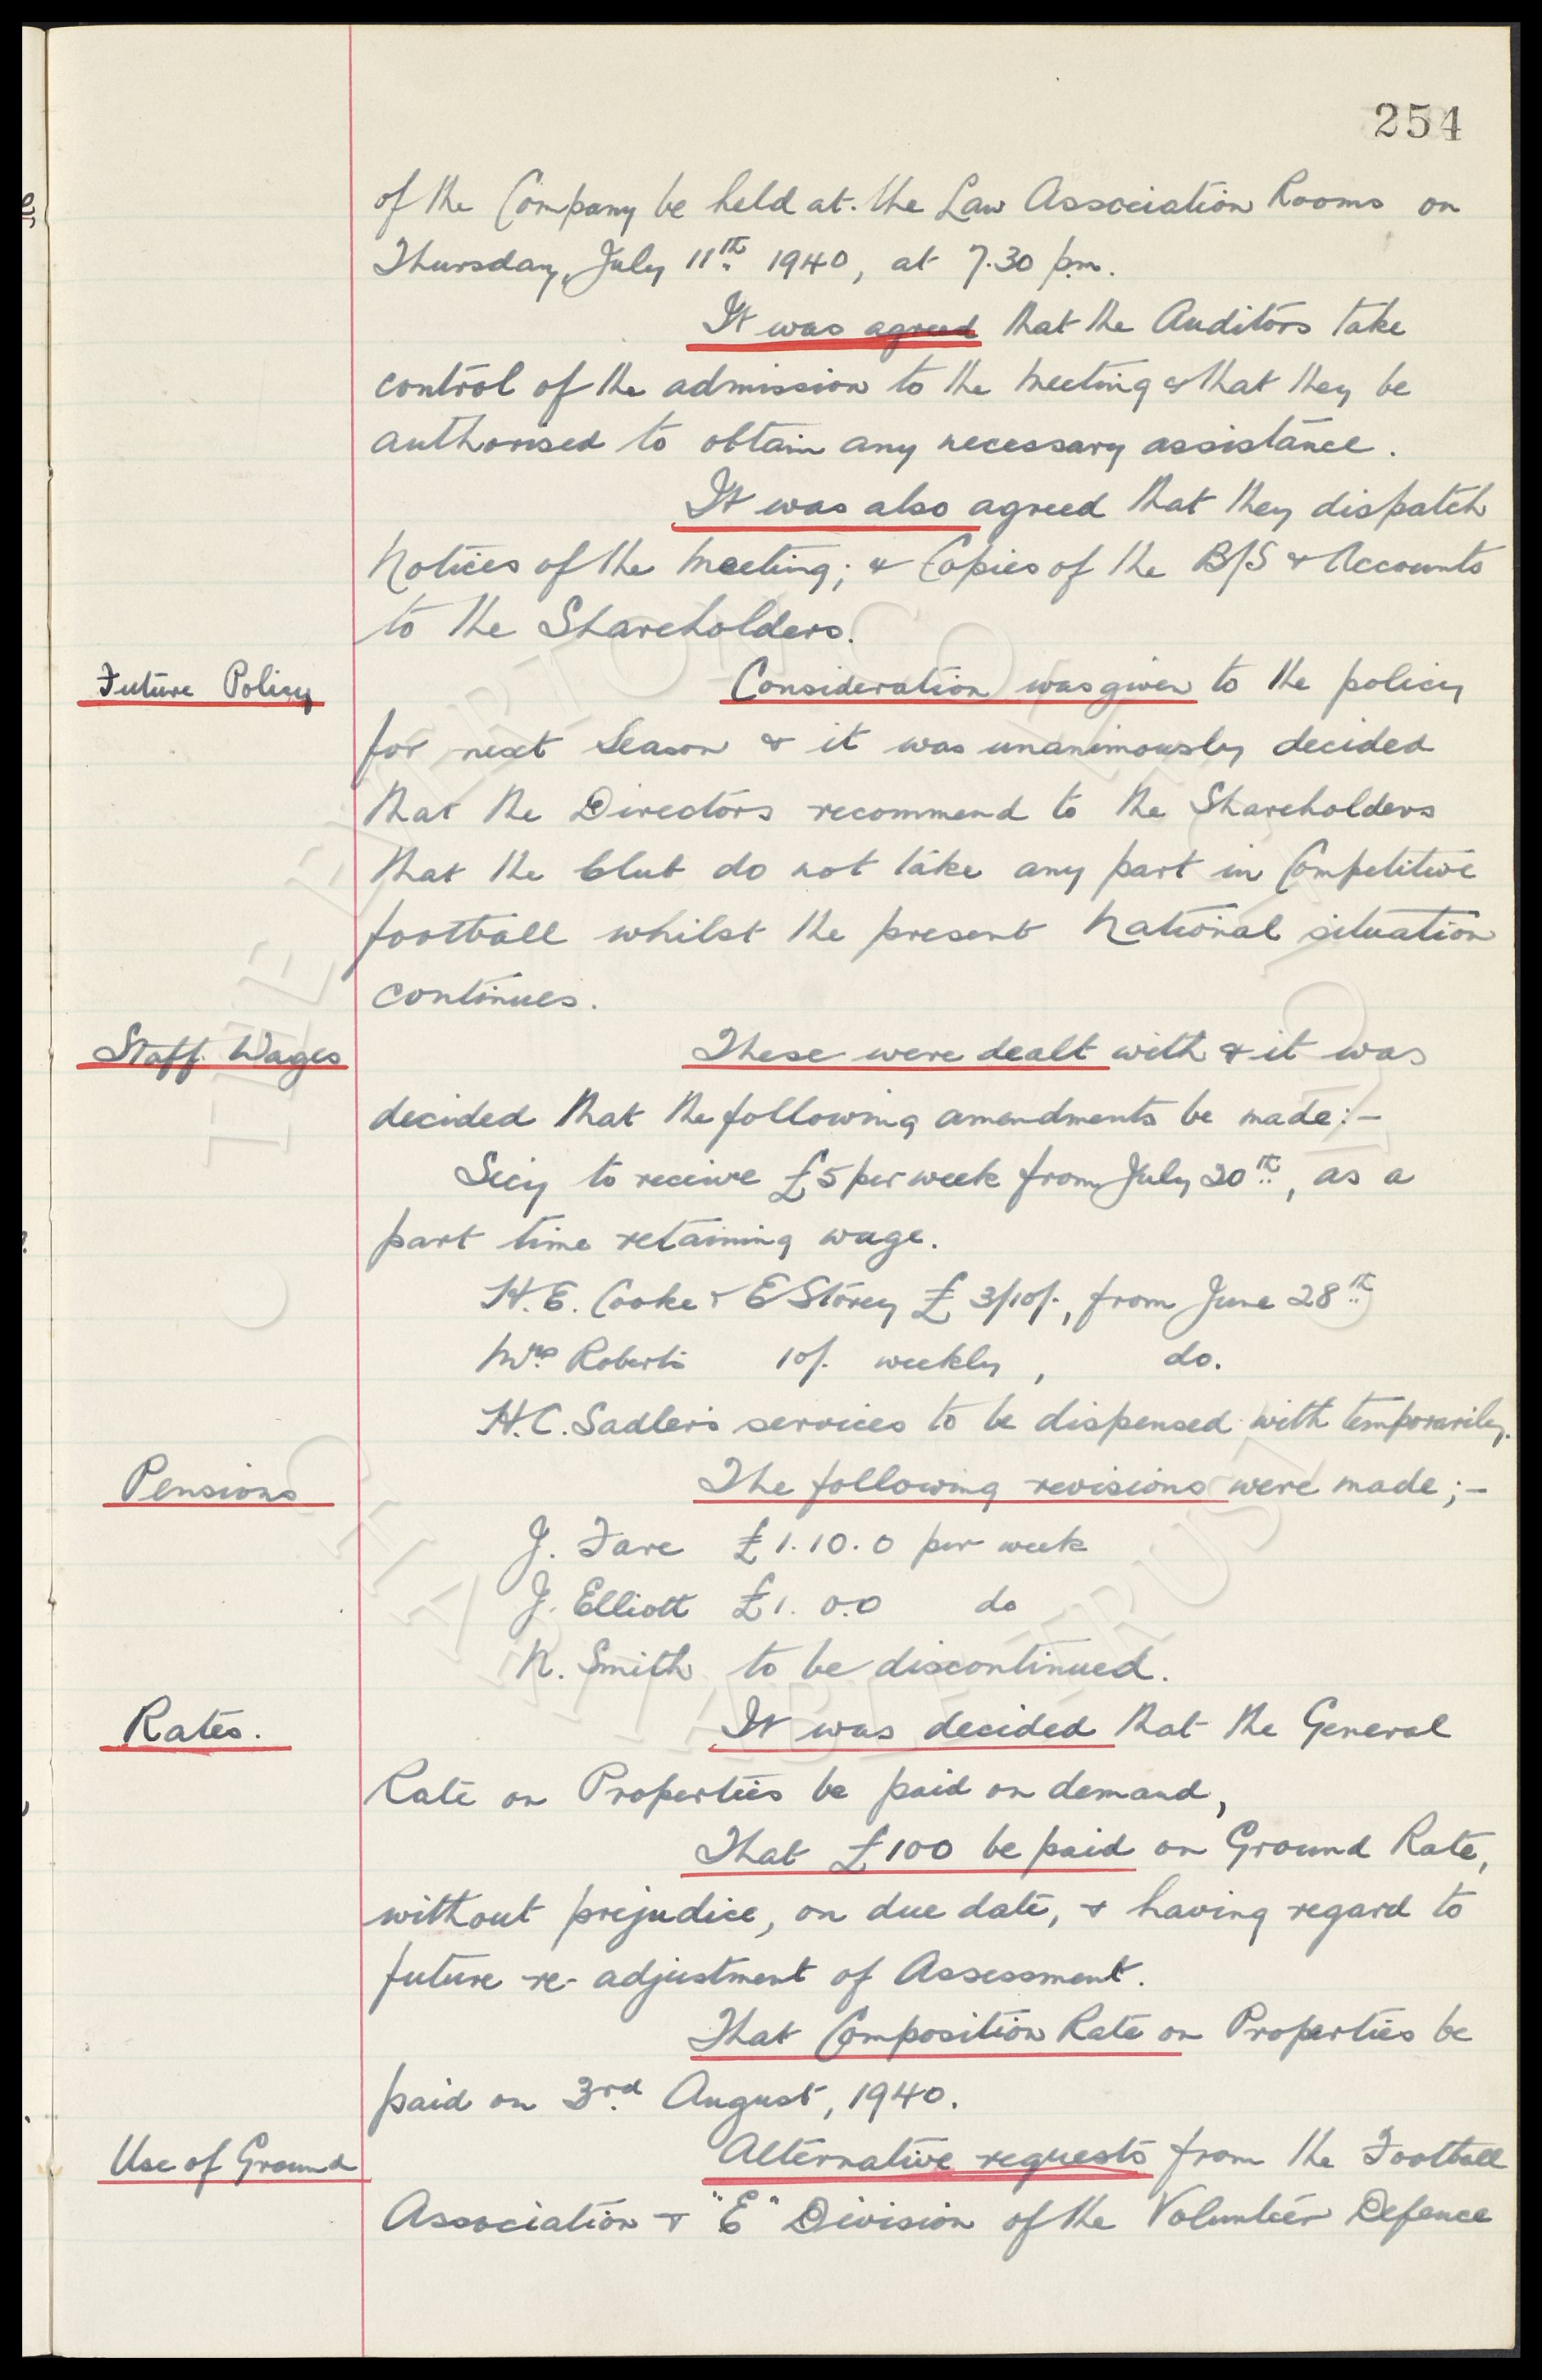 254
of the Company be held at the Law Association Rooms on
Thursday, July 11th 1940, at 7.30 p.m.
It was agreed that the Auditors take
control of the admission to the meeting & that they be
authorised to obtain any necessary assistance.
It was also agreed that they dispatch
Notices of the Meeting; & Copies of the B/S & Accounts
to the Shareholders.
Future Policy Consideration was given to the policy
for next Season & it was unanimously decided
that the Directors recommend to the Shareholders
that the Club do not take any part in Competitive
football whilst the present National situation
continues.
Staff Wages These were dealt with & it was
decided that the following amendments be made:-
Secy to receive £5 per week from July 20th, as a
part time retaining wage.
H.E. Cooke & E Storey £3/10/-, from June 28th
Mrs Roberts 10/- weekly, do.
H.C. Sadler's services to be dispensed with temporarily.
Pensions The following revisions were made;-
J. Fare £1.10.0 per week
J. Elliott £1.0.0 do
N. Smith to be discontinued.
Rates. It was decided that the General
Rate on Properties be paid on demand,
That £100 be paid on Ground Rate,
without prejudice, on due date, & having regard to
future re-adjustment of Assessment.
That Composition Rate on Properties be
paid on 3rd August, 1940.
Use of Ground Alternative requests from the Football
Association & "E" Division of the Volunteer Defence